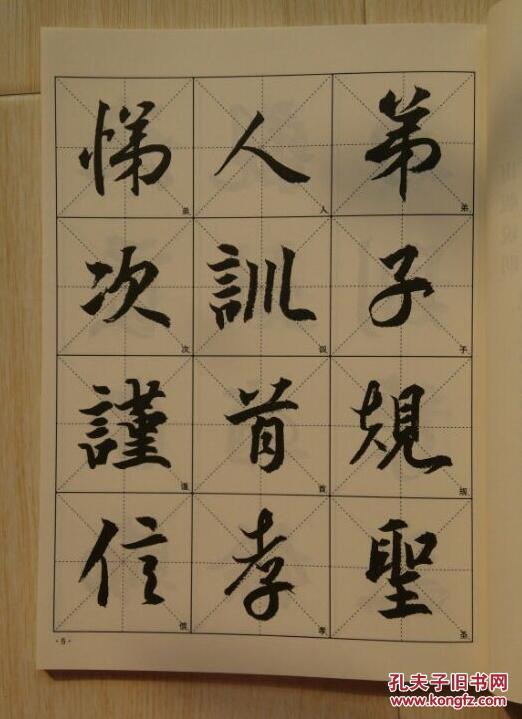 弟子規聖
人訓首孝
悌次謹信
弟
子
规
圣
人
训
首
孝
次
谨
信
·5·
孔夫子旧书网
kongfz.com